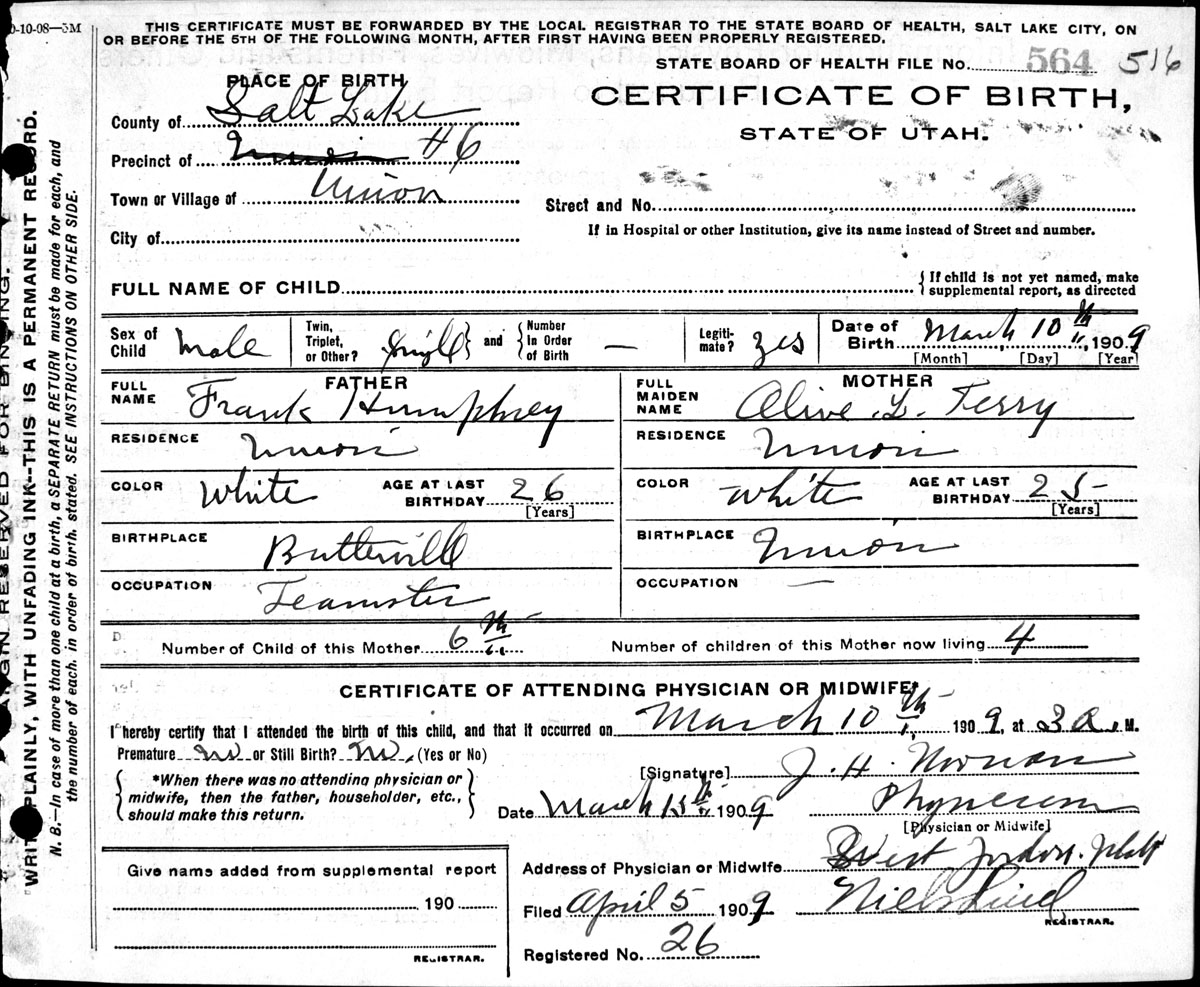 0-10-08—5M
THIS CERTIFICATE MUST BE FORWARDED BY THE LOCAL REGISTRAR TO THE STATE BOARD OF HEALTH, SALT LAKE CITY, ON
OR BEFORE THE 5TH OF THE FOLLOWING MONTH, AFTER FIRST HAVING BEEN PROPERLY REGISTERED.
STATE BOARD OF HEALTH FILE No. 564 516
PLACE OF BIRTH
CERTIFICATE OF BIRTH,
STATE OF UTAH.
County of Salt Lake
Precinct of Union #6
Town or Village of Union
Street and No.
City of
If in Hospital or other Institution, give its name instead of Street and number.
FULL NAME OF CHILD
{ If child is not yet named, make
supplemental report, as directed
Sex of Child Male
Twin, Triplet, or Other? Single } and { Number In Order of Birth —
Legiti-mate? Yes
Date of Birth March 10th, 1909
[Month] [Day] [Year]
FATHER
FULL NAME Frank Humphrey
RESIDENCE Union
COLOR White AGE AT LAST BIRTHDAY 26
[Years]
BIRTHPLACE Butterville
OCCUPATION Teamster
MOTHER
FULL MAIDEN NAME Olive L. Terry
RESIDENCE Union
COLOR White AGE AT LAST BIRTHDAY 25
[Years]
BIRTHPLACE Union
OCCUPATION —
Number of Child of this Mother 6th Number of children of this Mother now living 4
CERTIFICATE OF ATTENDING PHYSICIAN OR MIDWIFE*
I hereby certify that I attended the birth of this child, and that it occurred on March 10th, 1909, at 3 a. M.
Premature No or Still Birth? No. (Yes or No)
{ *When there was no attending physician or
midwife, then the father, householder, etc.,
should make this return. }
[Signature] J. H.
Date March 15th 1909 Physician
[Physician or Midwife]
Address of Physician or Midwife West Jordan. Utah
Filed April 5 1909 Niels Lind
REGISTRAR.
Registered No. 26
Give name added from supplemental report
190
REGISTRAR.
MARGIN RESERVED FOR BINDING.
WRITE PLAINLY, WITH UNFADING INK--THIS IS A PERMANENT RECORD.
N. B.—In case of more than one child at a birth, a SEPARATE RETURN must be made for each, and
the number of each, in order of birth, stated. SEE INSTRUCTIONS ON OTHER SIDE.